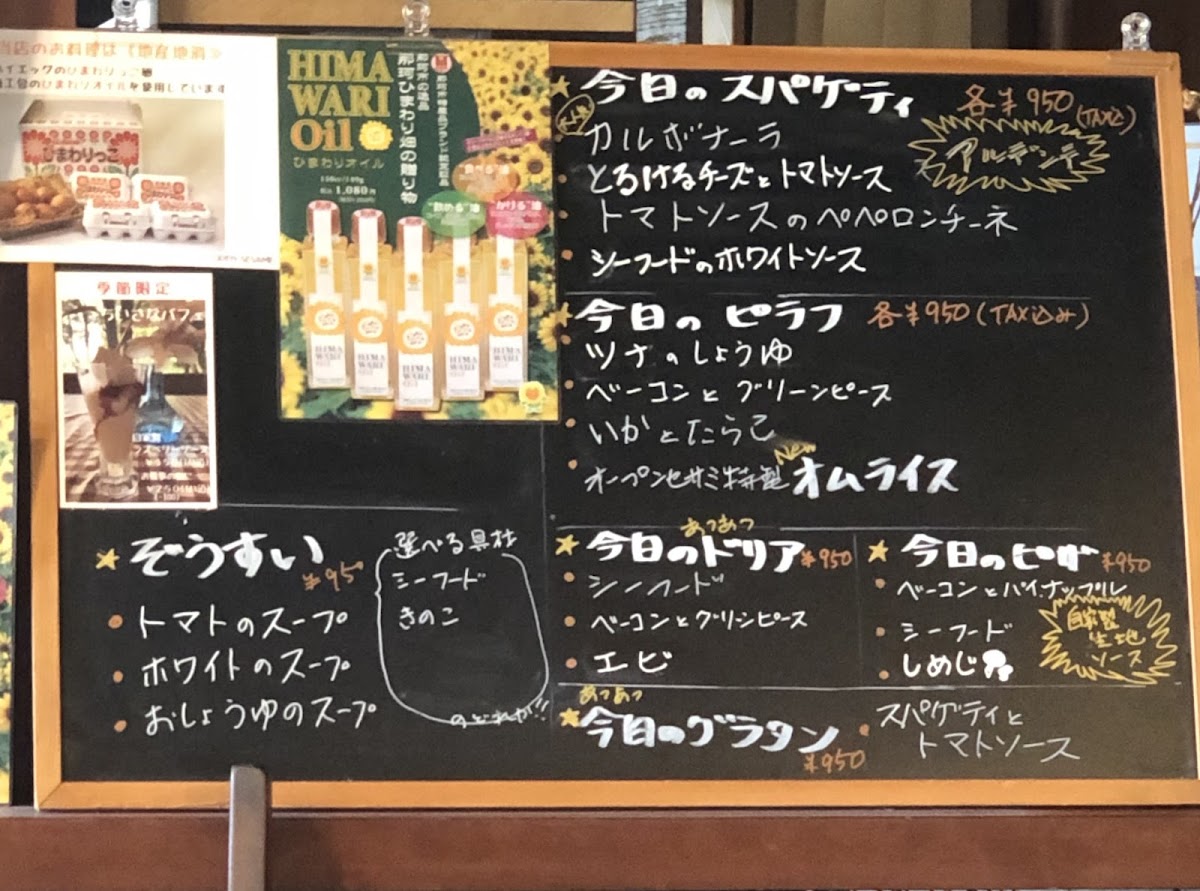 当店のお料理は《地産地消》
ひまわりオイルを使用しています
ひまわりっこ
HIMA
WARI
Oil
ひまわりオイル
1,080円
那珂ひまわり畑の贈り物
那珂市の逸品
"飲める"油
"かける"油
HIMA
WARI
季節限定
ちいさなパフェ
今日のスパゲーティ 各¥950(TAX込)
アルデンテ
カルボナーラ
とろけるチーズとトマトソース
トマトソースのペペロンチーネ
シーフードのホワイトソース
今日のピラフ 各¥950(TAX込み)
ツナのしょうゆ
ベーコンとグリーンピース
いかとたらこ
NEW
オープンセサミ特製オムライス
ぞうすい ¥950
トマトのスープ
ホワイトのスープ
おしょうゆのスープ
選べる具材
シーフード
きのこ
のどれか!!
あつあつ
今日のドリア ¥950
シーフード
ベーコンとグリンピース
エビ
今日のピザ ¥950
ベーコンとパイナップル
シーフード
しめじ
自家製
生地
ソース
あつあつ
今日のグラタン ¥950
スパゲティと
トマトソース